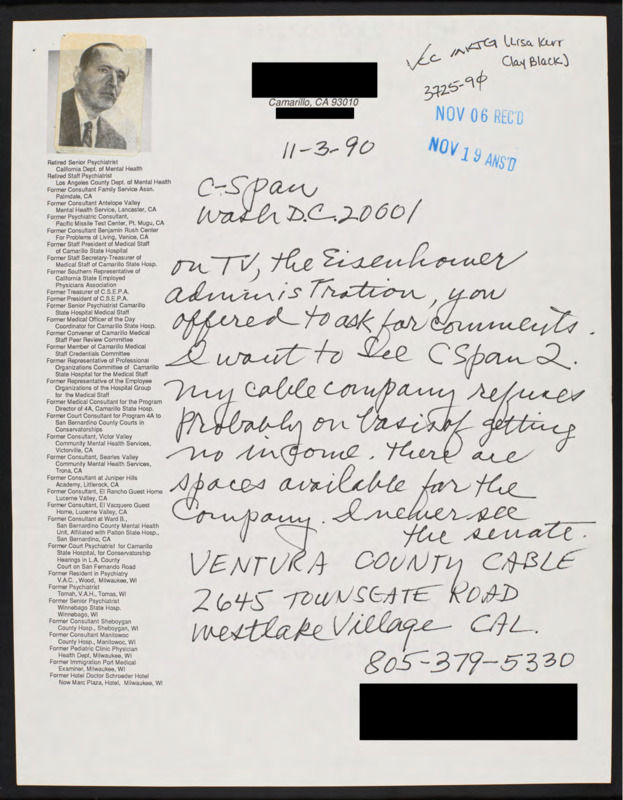 VCC MKTG (Lisa Kerr
Clay Black)
3725-90
NOV 06 REC'D
NOV 19 ANS'D
Camarillo, CA 93010
11-3-90
C-Span
Wash D.C. 20001
on TV, the Eisenhower
administration, you
offered to ask for comments.
I want to see C Span 2.
my cable company refuses
probably on basis of getting
no income. there are
spaces available for the
Company. I never see
the senate.
VENTURA COUNTY CABLE
2645 TOWNSGATE ROAD
westlake Village CAL.
805-379-5330
Retired Senior Psychiatrist
California Dept. of Mental Health
Retired Staff Psychiatrist
Los Angeles County Dept. of Mental Health
Former Consultant Family Service Assn.
Palmdale, CA
Former Consultant Antelope Valley
Mental Health Service, Lancaster, CA
Former Psychiatric Consultant,
Pacific Missile Test Center, Pt. Mugu, CA
Former Consultant Benjamin Rush Center
For Problems of Living, Venice, CA
Former Staff President of Medical Staff
of Camarillo State Hospital
Former Staff Secretary-Treasurer of
Medical Staff of Camarillo State Hosp.
Former Southern Representative of
California State Employed
Physicians Association
Former Treasurer of C.S.E.P.A.
Former President of C.S.E.P.A.
Former Senior Psychiatrist Camarillo
State Hospital Medical Staff
Former Medical Officer of the Day
Coordinator for Camarillo State Hosp.
Former Convener of Camarillo Medical
Staff Peer Review Committee
Former Member of Camarillo Medical
Staff Credentials Committee
Former Representative of Professional
Organizations Committee of Camarillo
State Hospital for the Medical Staff
Former Representative of the Employee
Organizations of the Hospital Group
for the Medical Staff
Former Medical Consultant for the Program
Director of 4A, Camarillo State Hosp.
Former Court Consultant for Program 4A to
San Bernardino County Courts in
Conservatorships
Former Consultant, Victor Valley
Community Mental Health Services,
Victorville, CA
Former Consultant, Searles Valley
Community Mental Health Services,
Trona, CA
Former Consultant at Juniper Hills
Academy, Littlerock, CA
Former Consultant, El Rancho Guest Home
Lucerne Valley, CA
Former Consultant, El Vacquero Guest
Home, Lucerne Valley, CA
Former Consultant at Ward B.,
San Bernardino County Mental Health
Unit, Affiliated with Patton State Hosp.,
San Bernardino, CA
Former Court Psychiatrist for Camarillo
State Hospital, for Conservatorship
Hearings in L.A. County
Court on San Fernando Road
Former Resident in Psychiatry
V.A.C., Wood, Milwaukee, WI
Former Psychiatrist
Tomah, V.A.H., Tomas, WI
Former Senior Psychiatrist
Winnebago State Hosp.
Winnebago, WI
Former Consultant Sheboygan
County Hosp., Sheboygan, WI
Former Consultant Manitowoc
County Hosp., Manitowoc, WI
Former Pediatric Clinic Physician
Health Dept, Milwaukee, WI
Former Immigration Port Medical
Examiner, Milwaukee, WI
Former Hotel Doctor Schroeder Hotel
Now Marc Plaza, Hotel, Milwaukee, WI